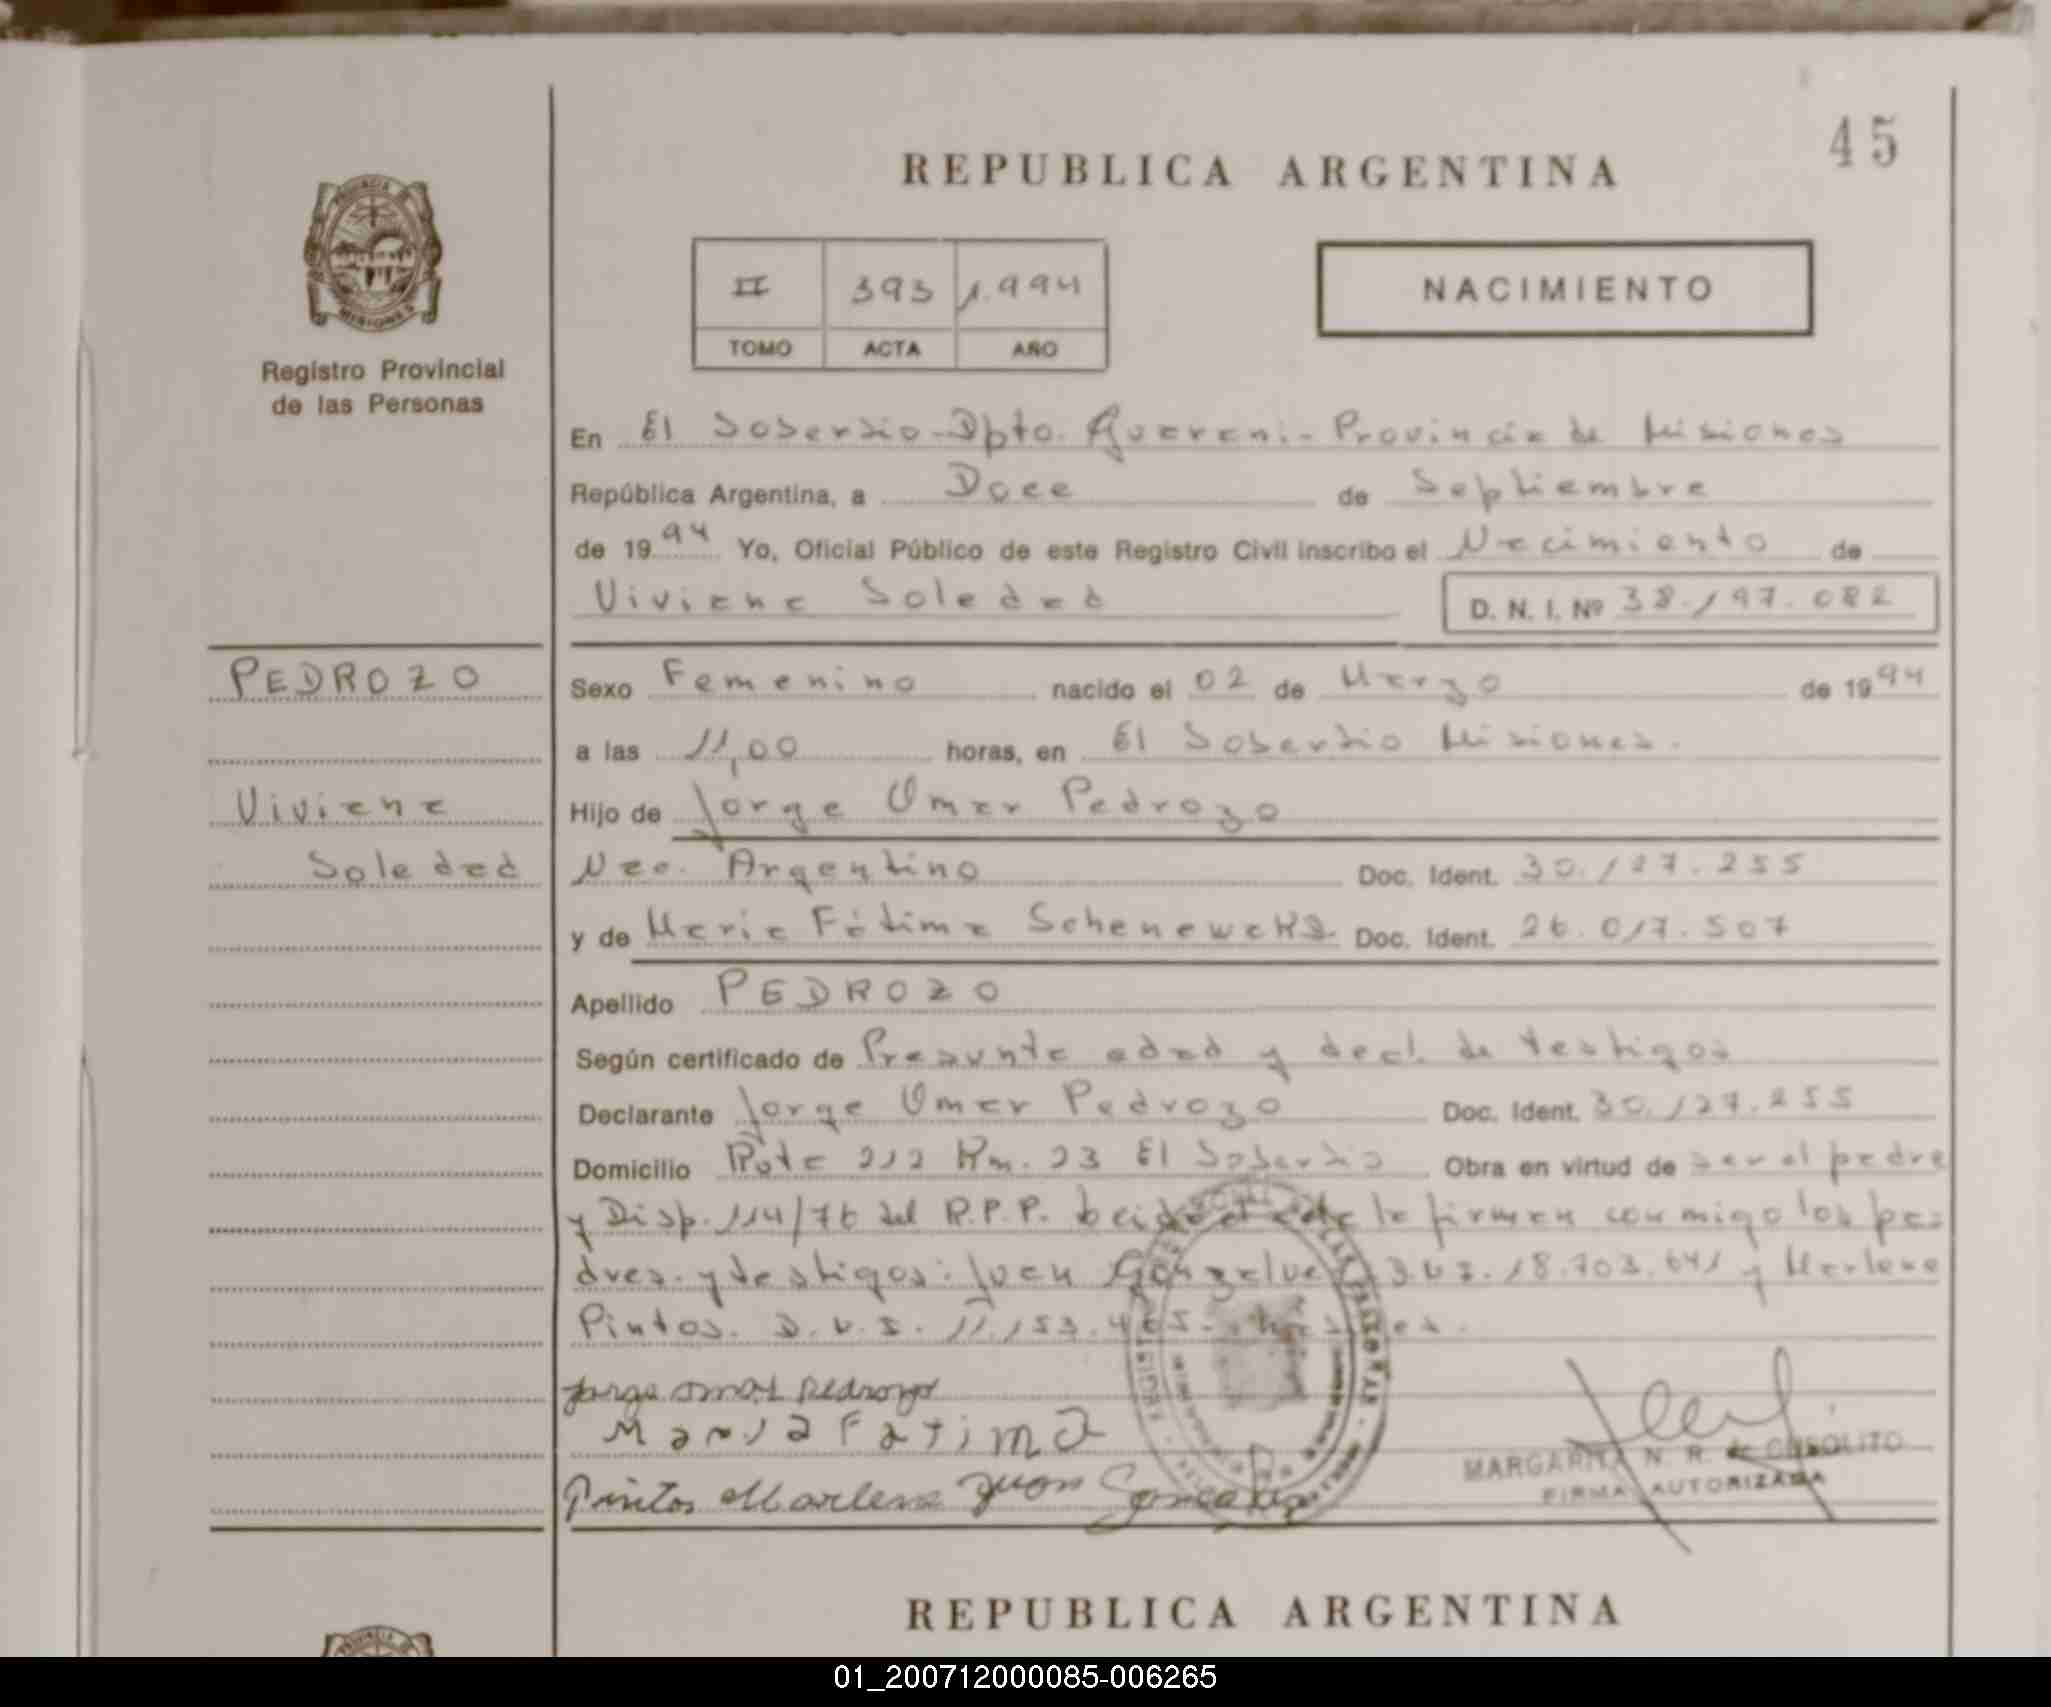 45
REPUBLICA ARGENTINA
PROVINCIA DE
MISIONES
Registro Provincial
de las Personas
II 393 1.994
TOMO ACTA AÑO
NACIMIENTO
En El Soberbio-Dpto. Guarani- Provincia de Misiones
República Argentina, a Doce de Septiembre
de 1994 Yo, Oficial Público de este Registro Civil inscribo el Nacimiento de
Viviana Soledad D. N. I. Nº 38.197.082
PEDROZO
Viviana
Soledad
Sexo Femenino nacido el 02 de Marzo de 1994
a las 11,00 horas, en El Soberbio Misiones.
Hijo de Jorge Omar Pedrozo
Nac. Argentino Doc. Ident. 30.127.255
y de Maria Fátima Doc. Ident. 26.017.507
Apellido PEDROZO
Según certificado de Presunta edad y decl. de testigos
Declarante Jorge Omar Pedrozo Doc. Ident. 30.127.255
Domicilio Ruta 212 Km. 23 El Soberbio Obra en virtud de ser el padre
y Disp. 114/76 del R.P.P. Leida el acta la firman conmigo los pa=
dres. y testigos: Juan D.N.I. 18.703.641 y Marlene
Pintos. D.N.I. 11.153.465.
Jorge omar pedrozo
Maria Fatima
Pintos Marlene Juan
MARGARITA N. R. de
FIRMA AUTORIZADA
REPUBLICA ARGENTINA
01_200712000085-006265